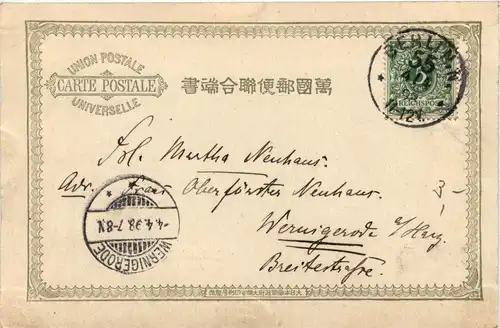 UNION POSTALE
CARTE POSTALE
UNIVERSELLE
書端合聯便郵國萬
BERLIN N.
REICHSPOST
Frl. Martha Neuhaus.
Adr. Frau Oberförster Neuhaus.
3-
Wernigerode a/Harz.
Breitestraße.
WERNIGERODE
* *
-4.4.98.7-8N.